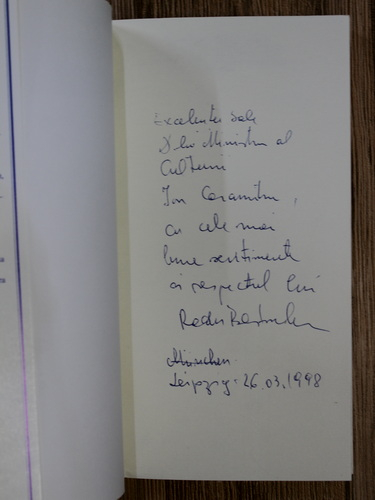 Excelenței Sale
D-lui Ministru al
Culturii
Ion Caramitru,
cu cele mai
bune sentimente
și respectul lui
Radu Bărbulescu
München
Leipzig. 26.03.1998